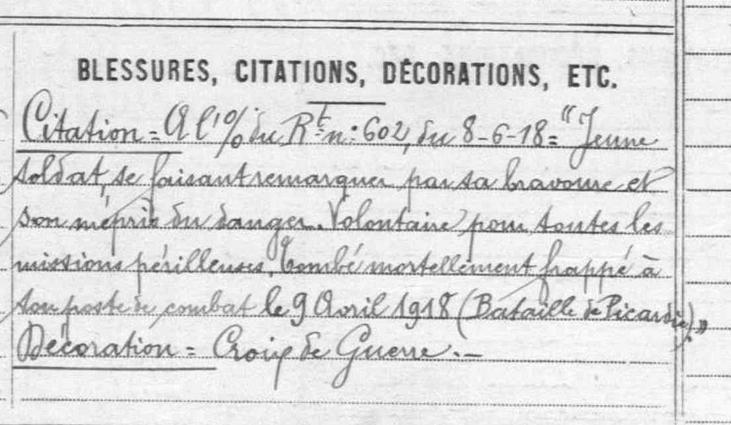 BLESSURES, CITATIONS, DÉCORATIONS, ETC.
Citation = A l'% du Rt n: 602, du 8-6-18 = "Jeune
soldat, se faisant remarquer par sa bravoure et
son mépris du danger. Volontaire pour toutes les
missions périlleuses. Tombé mortellement frappé à
son poste de combat le 9 Avril 1918 (Bataille de Picardie)."
Décoration = Croix de Guerre. –